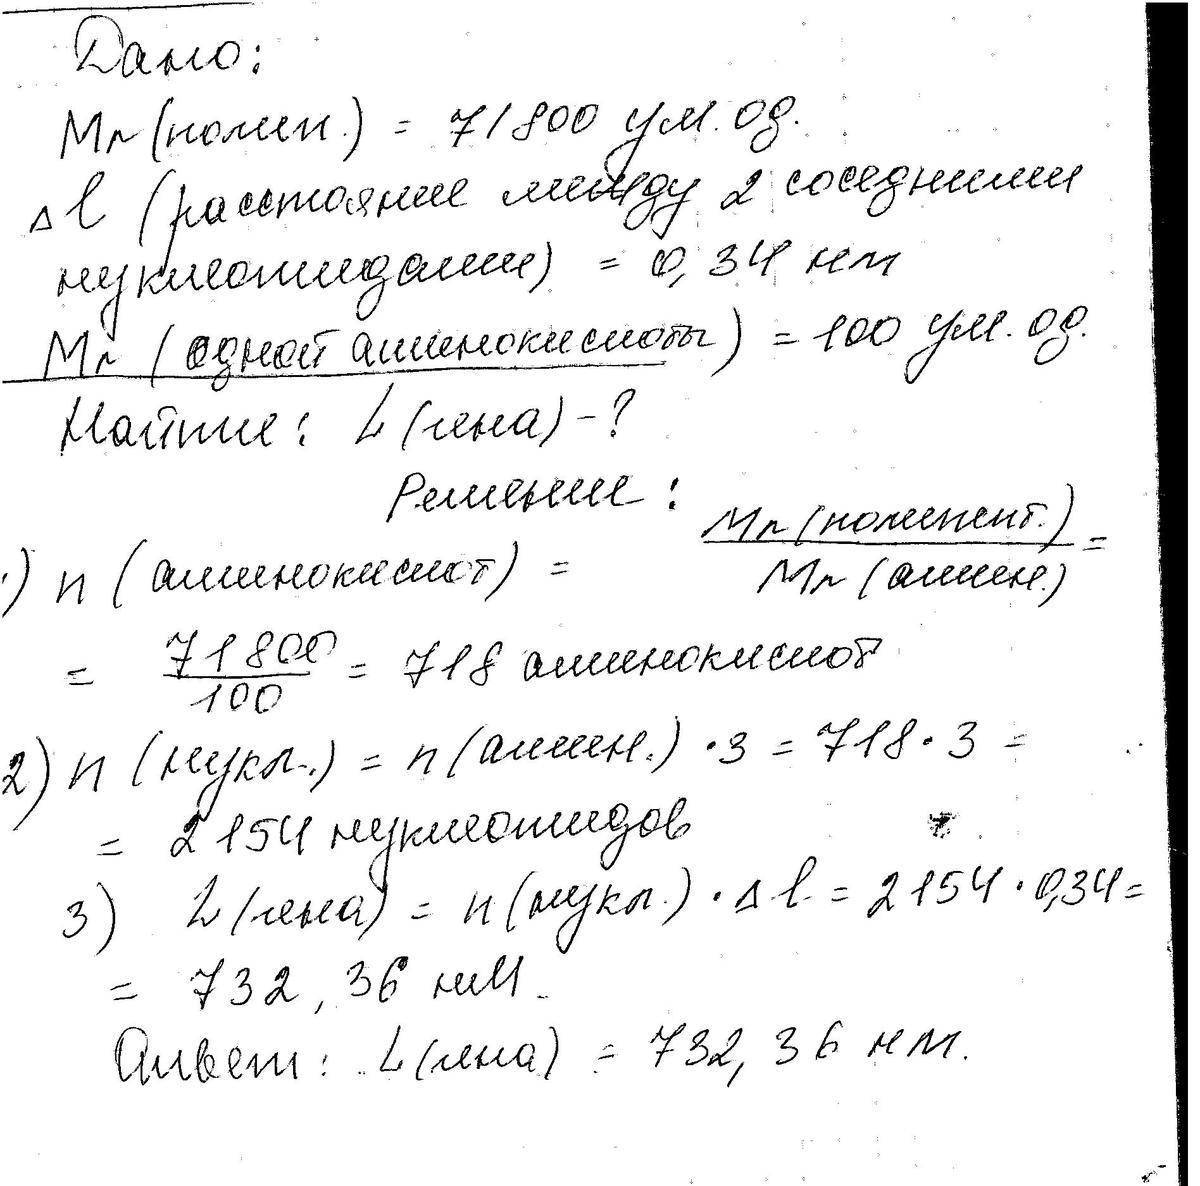 Дано:
Mr (полип.) = 71800 ум. ед.
Δl (расстояние между 2 соседними
нуклеотидами) = 0,34 нм
Mr (одной аминокислоты) = 100 ум. ед.
Найти: L (гена) - ?
Решение:
1) n (аминокислот) = Mr (полипепт.) / Mr (амин.) =
= 71800 / 100 = 718 аминокислот
2) n (нукл.) = n (амин.) · 3 = 718 · 3 =
= 2154 нуклеотидов
3) L (гена) = n (нукл.) · Δl = 2154 · 0,34 =
= 732,36 нм.
Ответ: L (гена) = 732,36 нм.